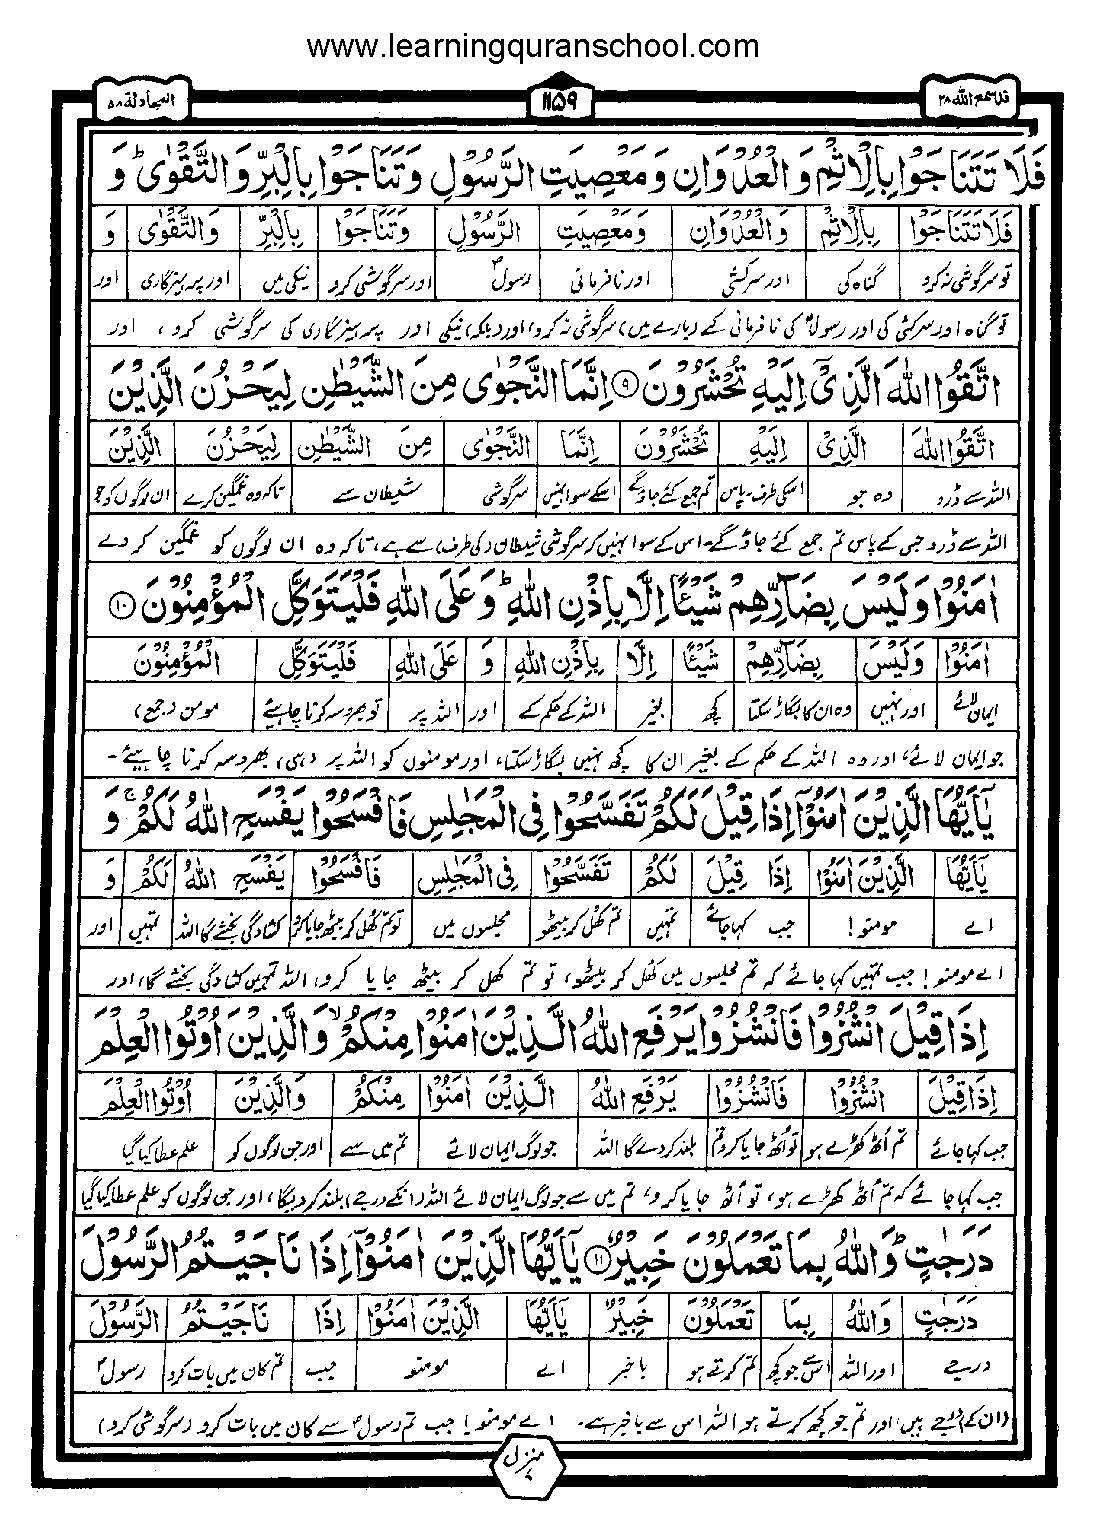 www.learningquranschool.com
قد سمع الله ۲۸
۱۱۵۹
المجادلة ۵۸
فَلَا تَتَنَاجَوْا بِالْاِثْمِ وَ الْعُدْوَانِ وَ مَعْصِيَتِ الرَّسُوْلِ وَ تَنَاجَوْا بِالْبِرِّ وَ التَّقْوٰى ؕ وَ
فَلَا تَتَنَاجَوْا بِالْاِثْمِ وَ الْعُدْوَانِ وَ مَعْصِيَتِ الرَّسُوْلِ وَ تَنَاجَوْا بِالْبِرِّ وَ التَّقْوٰى وَ
تو سرگوشی نہ کرو گناہ کی اور سرکشی اور نافرمانی رسولؐ اور سرگوشی کرو نیکی میں اور پرہیزگاری اور
تو گناہ اور سرکشی کی اور رسولؐ کی نافرمانی کے (بارے میں) سرگوشی نہ کرو، اور (بلکہ) نیکی اور پرہیزگاری کی سرگوشی کرو، اور
اتَّقُوا اللّٰهَ الَّذِىْۤ اِلَيْهِ تُحْشَرُوْنَ ۹ اِنَّمَا النَّجْوٰى مِنَ الشَّيْطٰنِ لِيَحْزُنَ الَّذِيْنَ
اتَّقُوا اللّٰهَ الَّذِىْۤ اِلَيْهِ تُحْشَرُوْنَ اِنَّمَا النَّجْوٰى مِنَ الشَّيْطٰنِ لِيَحْزُنَ الَّذِيْنَ
اللہ سے ڈرو وہ جو اسکی طرف۔پاس تم جمع کئے جاؤگے اسکے سوا نہیں سرگوشی شیطان سے تاکہ وہ غمگین کرے ان لوگوں کو جو
اللہ سے ڈرو جس کے پاس تم جمع کئے جاؤ گے۔ اس کے سوا نہیں کہ سرگوشی شیطان (کی طرف) سے ہے، تاکہ وہ ان لوگوں کو غمگین کر دے
اٰمَنُوْا وَ لَيْسَ بِضَآرِّهِمْ شَيْـًٔا اِلَّا بِاِذْنِ اللّٰهِ ؕ وَ عَلَى اللّٰهِ فَلْيَتَوَكَّلِ الْمُؤْمِنُوْنَ ۱۰
اٰمَنُوْا وَ لَيْسَ بِضَآرِّهِمْ شَيْـًٔا اِلَّا بِاِذْنِ اللّٰهِ وَ عَلَى اللّٰهِ فَلْيَتَوَكَّلِ الْمُؤْمِنُوْنَ
ایمان لائے اور نہیں وہ ان کا بگاڑ سکتا کچھ بغیر اللہ کے حکم کے اور اللہ پر تو بھروسہ کرنا چاہیئے مومن (جمع)
جو ایمان لائے، اور وہ اللہ کے حکم کے بغیر ان کا کچھ نہیں بگاڑ سکتا، اور مومنوں کو اللہ پر (ہی) بھروسہ کرنا چاہیئے۔
يٰۤاَيُّهَا الَّذِيْنَ اٰمَنُوْۤا اِذَا قِيْلَ لَكُمْ تَفَسَّحُوْا فِى الْمَجٰلِسِ فَافْسَحُوْا يَفْسَحِ اللّٰهُ لَكُمْ ۚ وَ
يٰۤاَيُّهَا الَّذِيْنَ اٰمَنُوْۤا اِذَا قِيْلَ لَكُمْ تَفَسَّحُوْا فِى الْمَجٰلِسِ فَافْسَحُوْا يَفْسَحِ اللّٰهُ لَكُمْ وَ
اے مومنو! جب کہا جائے تمہیں تم کھل کر بیٹھو مجلسوں میں تو تم کھل کر بیٹھ جایا کرو کشادگی بخشے گا اللہ تمہیں اور
اے مومنو! جب تمہیں کہا جائے کہ تم مجلسوں میں کھل کر بیٹھو، تو تم کھل کر بیٹھ جایا کرو، اللہ تمہیں کشادگی بخشے گا، اور
اِذَا قِيْلَ انْشُزُوْا فَانْشُزُوْا يَرْفَعِ اللّٰهُ الَّذِيْنَ اٰمَنُوْا مِنْكُمْ ۙ وَ الَّذِيْنَ اُوْتُوا الْعِلْمَ
اِذَا قِيْلَ انْشُزُوْا فَانْشُزُوْا يَرْفَعِ اللّٰهُ الَّذِيْنَ اٰمَنُوْا مِنْكُمْ وَ الَّذِيْنَ اُوْتُوا الْعِلْمَ
جب کہا جائے تم اُٹھ کھڑے ہو تو اُٹھ جایا کرو تم بلند کر دے گا اللہ جو لوگ ایمان لائے تم میں سے اور جن لوگوں کو علم عطا کیا گیا
جب کہا جائے کہ تم اُٹھ کھڑے ہو، تو اُٹھ جایا کرو، تم میں سے جو لوگ ایمان لائے اللہ (انکے درجے) بلند کر دیگا، اور جن لوگوں کو علم عطا کیا گیا
دَرَجٰتٍ ؕ وَ اللّٰهُ بِمَا تَعْمَلُوْنَ خَبِيْرٌ ۱۱ يٰۤاَيُّهَا الَّذِيْنَ اٰمَنُوْۤا اِذَا نَاجَيْتُمُ الرَّسُوْلَ
دَرَجٰتٍ وَ اللّٰهُ بِمَا تَعْمَلُوْنَ خَبِيْرٌ يٰۤاَيُّهَا الَّذِيْنَ اٰمَنُوْۤا اِذَا نَاجَيْتُمُ الرَّسُوْلَ
درجے اور اللہ اسے جو کچھ تم کرتے ہو باخبر اے مومنو جب تم کان میں بات کرو رسولؐ
(ان کے) درجے ہیں، اور تم جو کچھ کرتے ہو اللہ اس سے باخبر ہے۔ اے مومنو! جب تم رسولؐ سے کان میں بات کرو (سرگوشی کرو)
منزل ۷